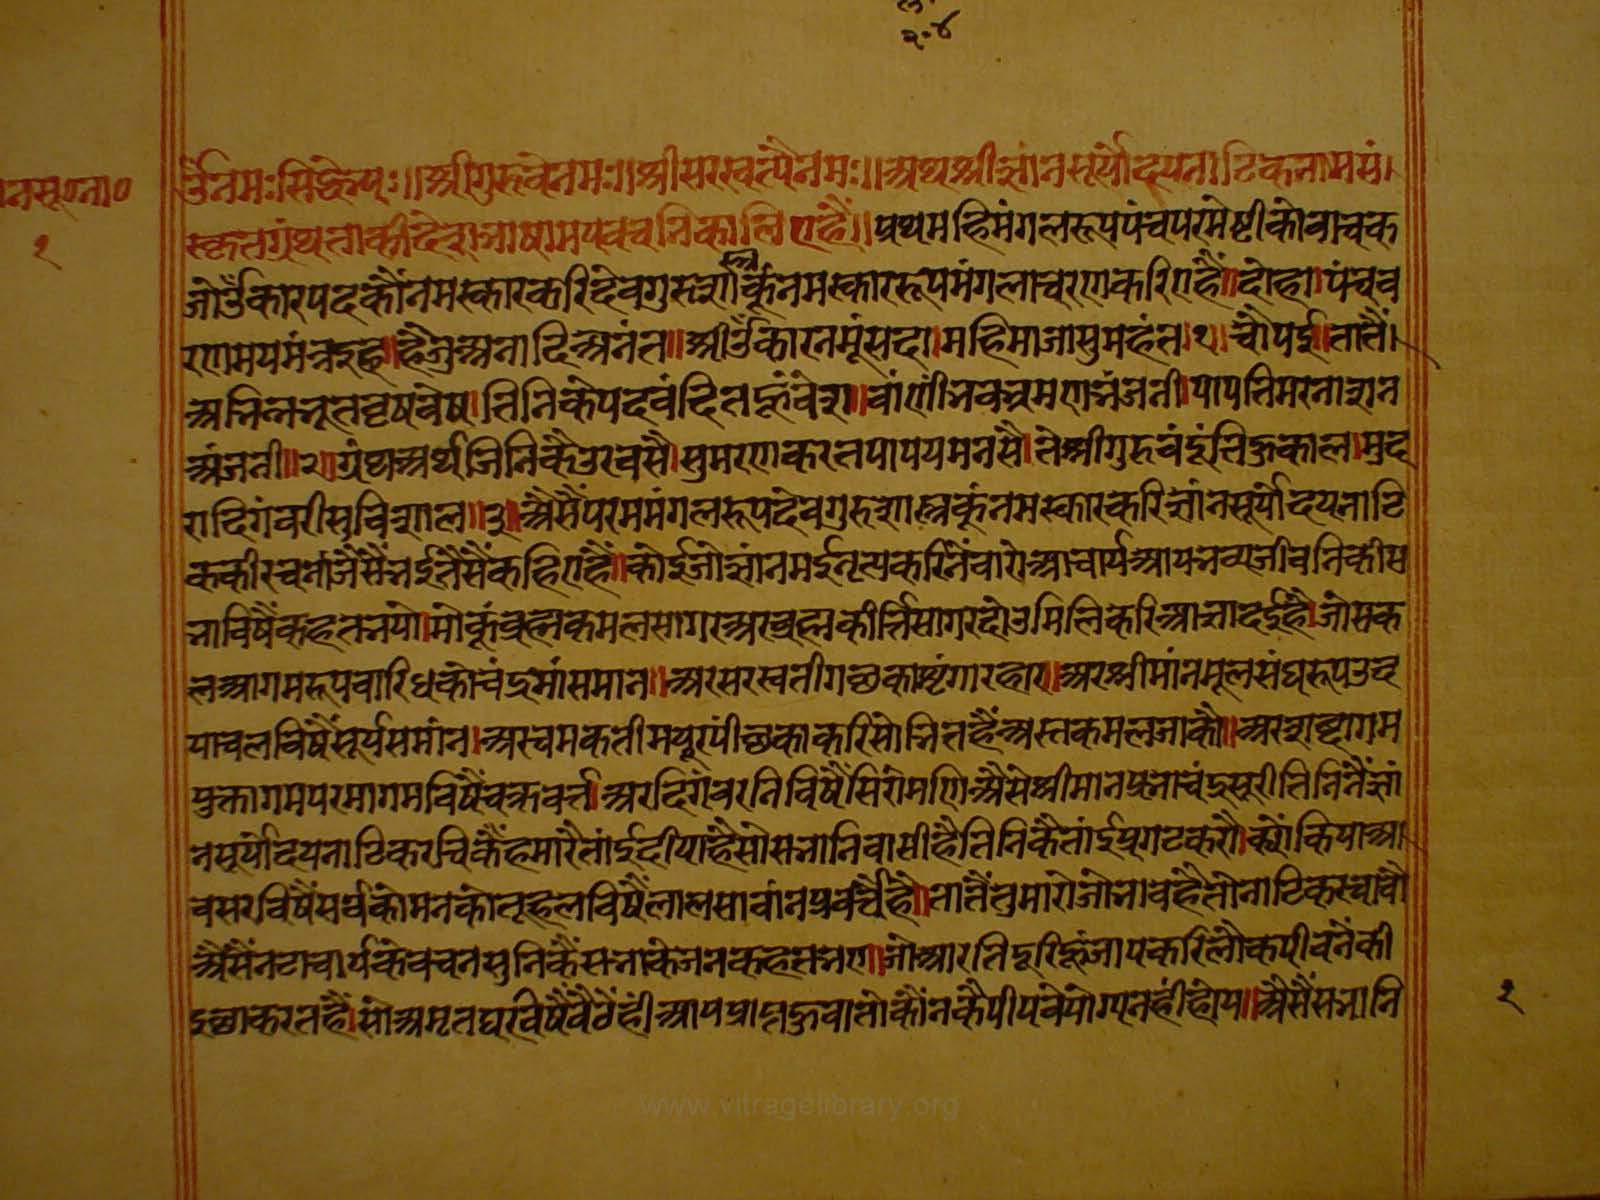 २·४
ॐनमःसिद्धेभ्यः॥श्रीगुरुभ्येनमः॥श्रीसरस्वत्यैनमः॥अथश्रीज्ञांनसूर्योदयनाटिकनामसं।
स्कृतग्रंथताकीदेशभाषामयवचनिकालिएहैं॥प्रथमहिमंगलरूपपंचपरमेष्टीकोवाचक
जोॐकारपदकौंनमस्कारकरिदेवगुरुशास्त्रकूंनमस्काररूपमंगलाचरणकरिएहैं॥दोहा॥पंचव
रणमयमंत्रइह।हैजुअनादिअनंत॥श्रीॐकारनमूंसदा।महिमाजासुमहंत।१।चौपई।तातैं।
तिनिकेपदवंदितहूंवेश॥वांणीभवभ्रमणभंजनी।पापतिमरनाशन
अंजनी॥२॥ग्रंथअर्थजिनिकैउरवसै।सुमरणकरतपापयमनसै।तेश्रीगुरुवंदूंतिहुकाल।मुद्
रादिगंवरीसुविशाल॥३॥अैसैंपरममंगलरूपदेवगुरुशास्त्रकूंनमस्कारकरिज्ञांनसूर्योदयनाटि
ककीरचनाजैसैंभईतैसैंकहिएहैं॥कोईजोज्ञांनमईनृत्यकरिनेंवारोआचार्यआयभव्यजीवनिकीस
भाविषैंकहतभयो।मोकूंव्रह्मकमलसागरअरव्रह्मकीर्त्तिसागरदोउमिलिकरिआज्ञादईहै।जोसक
लआगमरूपवारिधकोचंद्रमांसमान॥अरसरस्वतीगछकाशृंगारहार॥अरश्रीमांनमूलसंघरूपउद
याचलविषैंसूर्यसमांन।अरचमकतीमयूरपींछकाकरिसोभितहैंहस्तकमलजाकौ॥अरशब्दागम
युक्तागमपरमागमविषैंचक्रवर्त्त।अरदिगंवरनिविषैंसिरोमणिअैसेश्रीमानप्रभाचंद्रसूरीतिनिनैंज्ञां
नसूर्योदयनाटिकरचिकैंहमारैतांईदीयाहैसोसभानिवासीहैतिनिकैतांईप्रगटकरौ।क्योंकियाअ।
वसरविषैंसर्वकोमनकोतूहलविषैंलालसावांनप्रवर्त्तैहै॥तातैंतुमारोजोभावहैतोनाटिकरचावौ
अैसैंनटाचार्यकेवचनसुनिकैंसभाकेजनकहतभए।जोआरतिदूरिहूंजापकरिलौकपीवनेंकी
इछाकरतहैं।सोअमृतघरविषैंवैठेंहीआपप्राप्तहुवातोकौंनकैपीयवेयोग्यनहींहोय॥अैसैंसभानि
१